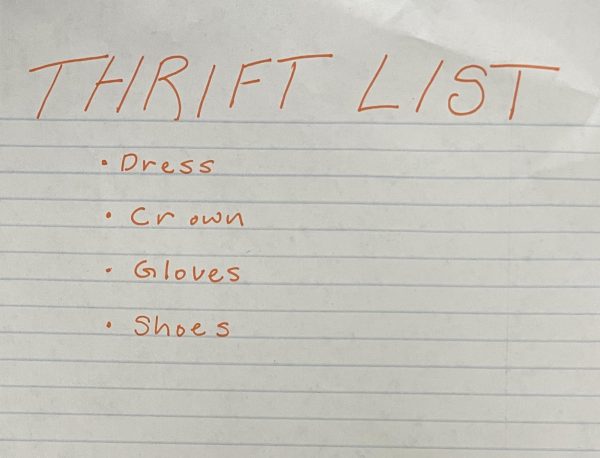 THRIFT LIST
• Dress
• Crown
• Gloves
• Shoes